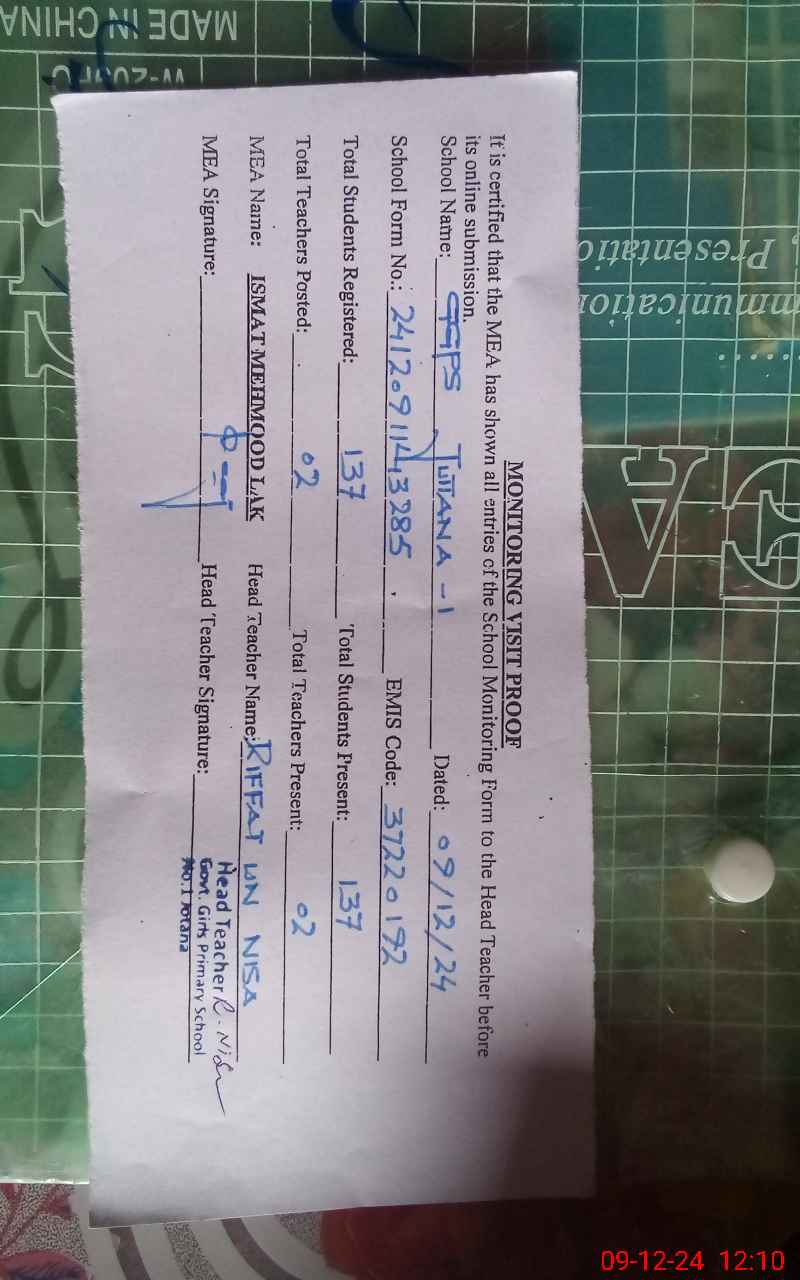 MONITORING VISIT PROOF
It is certified that the MEA has shown all entries of the School Monitoring Form to the Head Teacher before
its online submission.
School Name: GGPS JUTANA - 1 Dated: 09/12/24
School Form No.: 24120911443285 EMIS Code: 37220192
Total Students Registered: 137 Total Students Present: 137
Total Teachers Posted: 02 Total Teachers Present: 02
MEA Name: ISMAT MEHMOOD LAK Head Teacher Name: RIFFAT UN NISA
MEA Signature: Head Teacher Signature: R. Nisa
Head Teacher
Govt. Girls Primary School
No.1 Jotana
MADE IN CHINA
Presentatio
mmunication
09-12-24 12:10